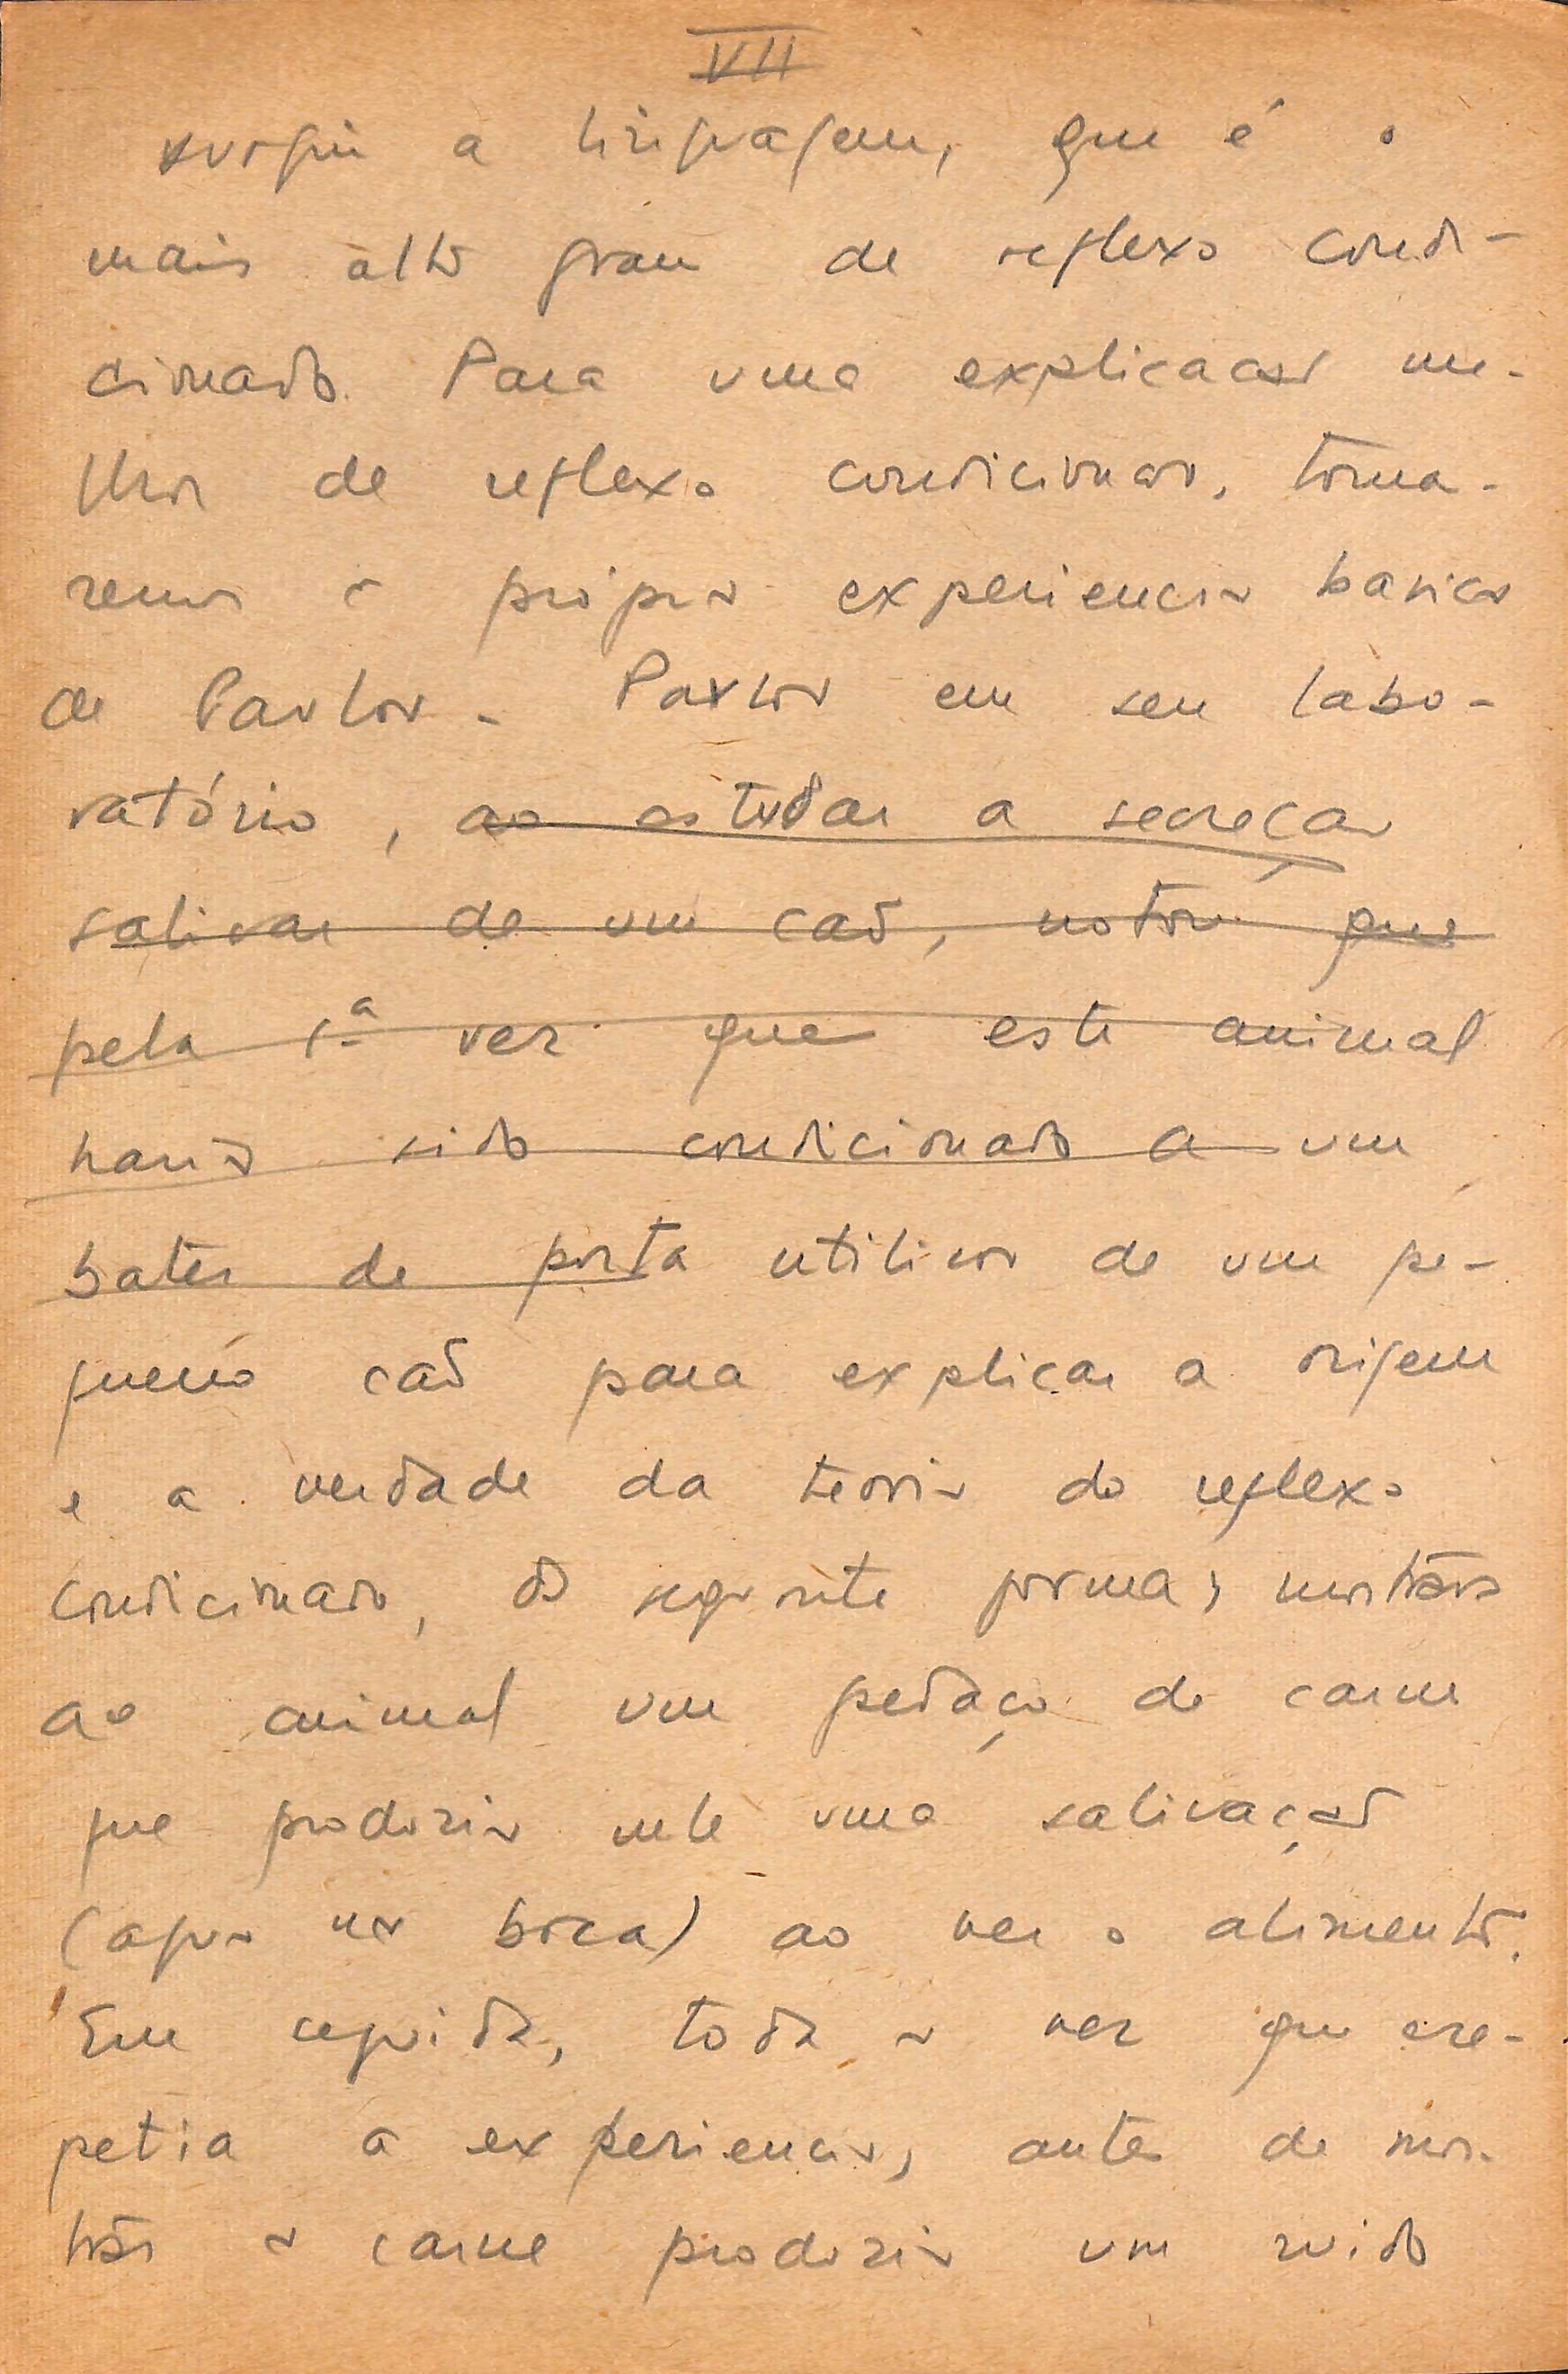 VII
surgiu a linguagem, que é o
mais alto grau de reflexo condi-
cionado. Para uma explicacaõ me-
lhor de reflexo condicionado, toma-
remos a própria experiencia basica
de Pavlov. Pavlov em seu labo-
ratório, ao estudar a secreçaõ
salivar de um caõ, notou que
pela 1ª vez que este animal
havia sido condicionado a um
bater de porta utilizou de um pe-
queno caõ para explicar a origem
e a verdade da teoria do reflexo
condicionado, da seguinte forma; mostrava
ao animal um pedaço de carne
que produzia nele uma salivaçaõ
(agua na boca) ao ver o alimento.
Em seguida, toda a vez que re-
petia a experiencia, antes de mos-
trar a carne produzia um ruido